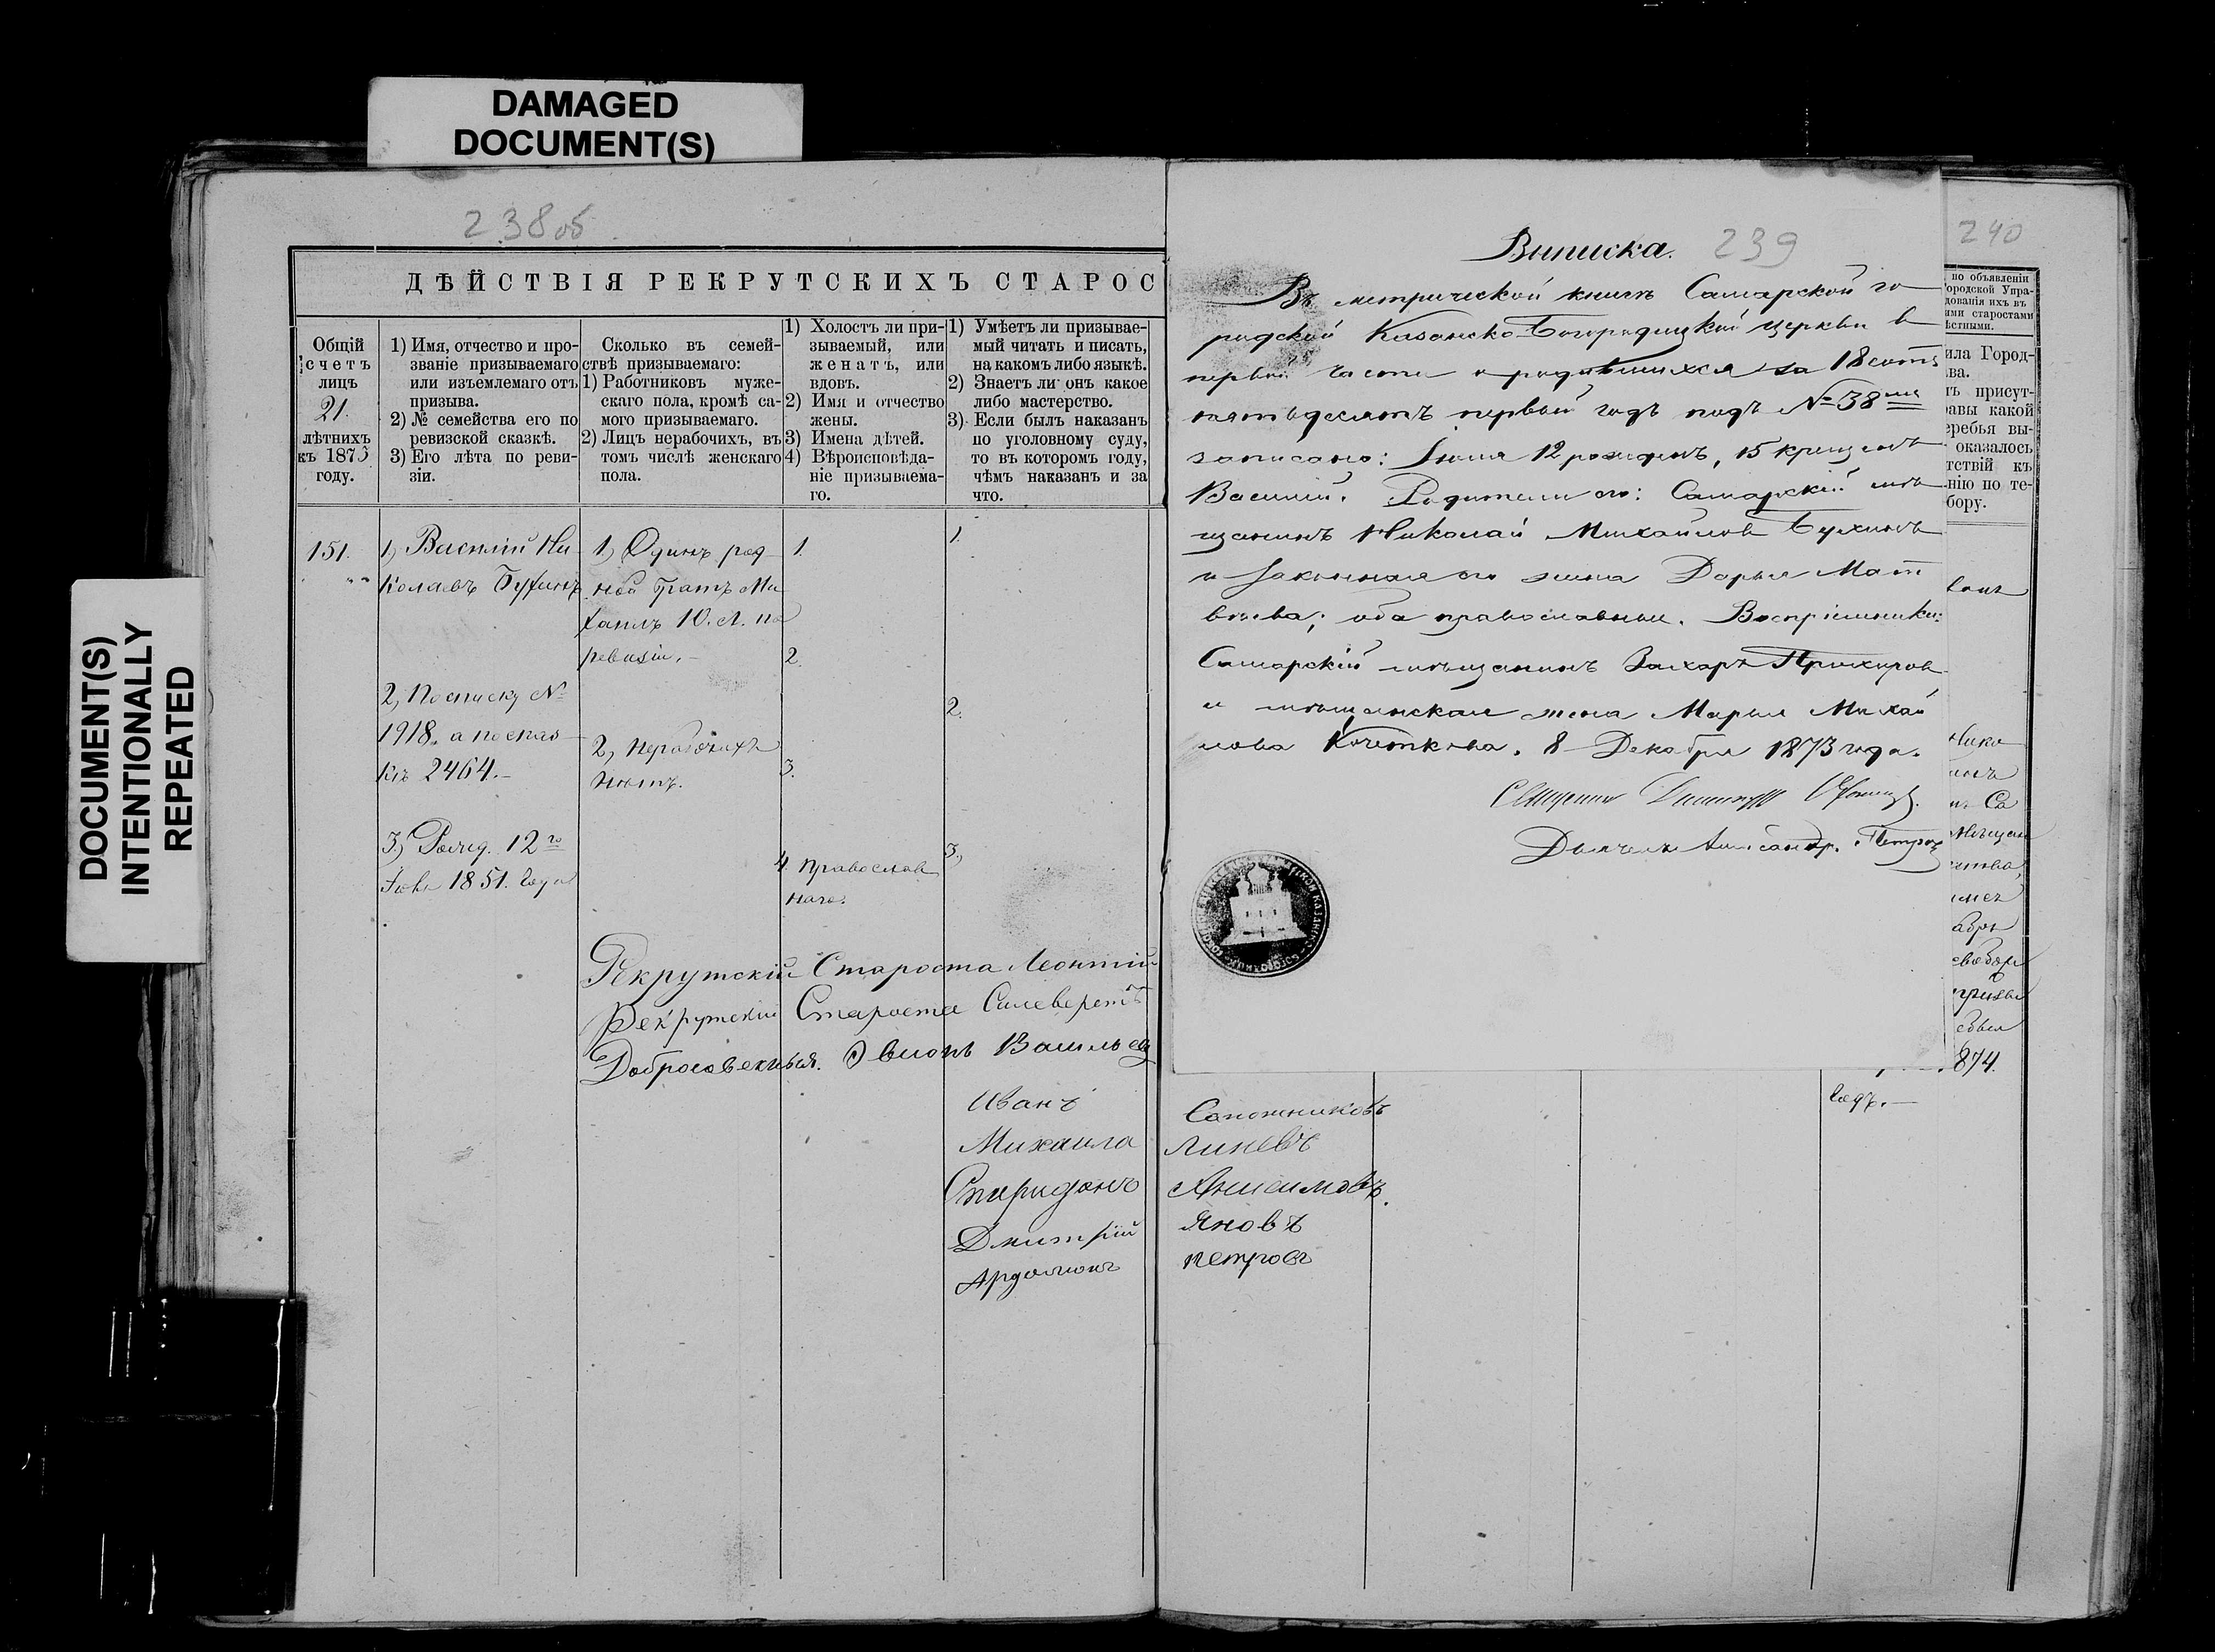 DAMAGED
DOCUMENT(S)
DOCUMENT(S)
INTENTIONALLY
REPEATED
238об
ДѢЙСТВІЯ РЕКРУТСКИХЪ СТАРОС
Общій
счетъ
лицъ
21.
лѣтнихъ
къ 1873
году.
1) Имя, отчество и про-
званіе призываемаго
или изъемлемаго отъ
призыва.
2) № семейства его по
ревизской сказкѣ.
3) Его лѣта по реви-
зіи.
Сколько въ семей-
ствѣ призываемаго:
1) Работниковъ муже-
скаго пола, кромѣ са-
мого призываемаго.
2) Лицъ нерабочихъ, въ
томъ числѣ женскаго
пола.
1) Холостъ ли при-
зываемый, или
женатъ, или
вдовъ.
2) Имя и отчество
жены.
3) Имена дѣтей.
4) Вѣроисповѣда-
ніе призываема-
го.
1) Умѣетъ ли призывае-
мый читать и писать,
на какомъ либо языкѣ.
2) Знаетъ ли онъ какое
либо мастерство.
3) Если былъ наказанъ
по уголовному суду,
то въ которомъ году,
чѣмъ наказанъ и за
что.
151.
1) Василій Ни
колаевъ Бухинъ
2, По списку №
1918, а по спис
къ 2464.
3) Рожд. 12го
1851. года
1, Одинъ род
ной братъ Ми
хаилъ 10. л. по
ревизіи.
2, Нерабочихъ
нѣтъ.
1.
2.
3.
4. Православ
наго.
1.
2.
3,
Рекрутскій Староста Леонтій
Рекрутскій Староста Силеверстъ
Добросовѣстныя. Васильевъ
Иванъ Сапожниковъ
Михаила Линевъ
Спиридонъ Анисимовъ.
Дмитрій Яновъ
Ардалионъ Петровъ
Выписка. 239
Въ метрической книгѣ Самарской го
родской Казанско-Богородицкой церкви в
первой части о родившихся за 18 сотъ
пятьдесятъ первый годъ подъ № 38мъ
записано: Іюня 12 рожденъ, 15 крещенъ
Василій. Родители его: Самарскій мѣ
щанинъ Николай Михайловъ Бухинъ
и законная его жена Дарья Мат
вѣева; оба православные. Воспріемники:
Самарскій мѣщанинъ Захаръ Прохоров
и мѣщанская жена Марья Михай
лова Кочеткова. 8 Декабря 1873 года.
Священникъ Димитрій
Дьячекъ Александр. Петров
240
по объявленіи
ородской Упра-
дованія ихъ въ
ими старостами
ѣстными.
ила Город-
ва.
ъ присут-
авы какой
еребья вы-
оказалось
тствій къ
нію по те-
бору.
Нико
Са
мѣщан
874.
годъ.